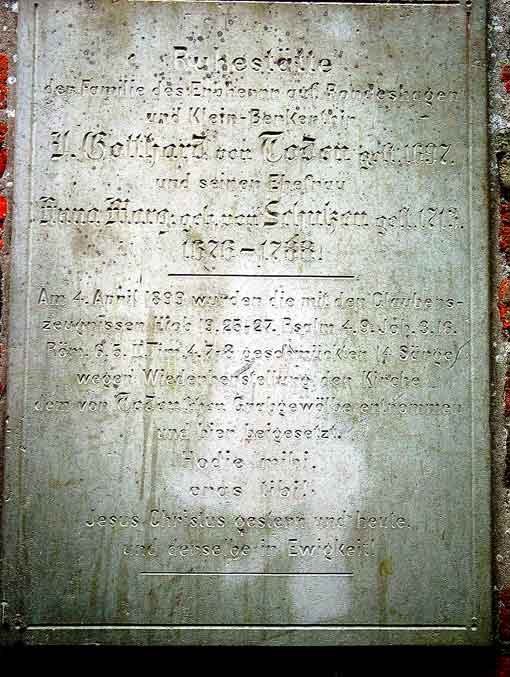 Ruhestätte
der Familie des Erbherrn auf Rondeshagen
und Klein-Berkenthin
V. Gotthard von Toden gest. 1697.
und seiner Ehefrau
Anna Marg. geb. von Schulzen gest. 1713.
1676-1788.
Am 4. April 1899 wurden die mit den Glaubens-
zeugnissen Hiob 19.25-27. Psalm 4.9. Joh. 3.16.
Röm. 6.5. II.Tim. 4.7-8 geschmückten 14 Särge
wegen Wiederherstellung der Kirche
dem von Toden'schen Grabgewölbe entnommen
und hier beigesetzt.
Hodie mihi.
cras tibi!
Jesus Christus gestern und heute.
und derselbe in Ewigkeit!